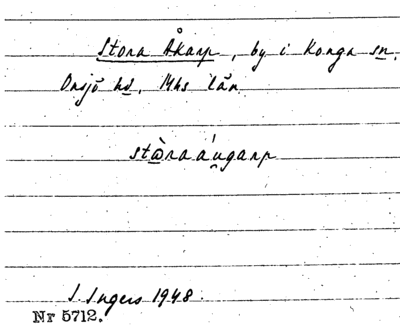 Stora Åkarp, by i Konga sn,
Onsjö hd, Mhs län
stò̱raáu̯garp
I. Ingers 1948.
Nr 5712.